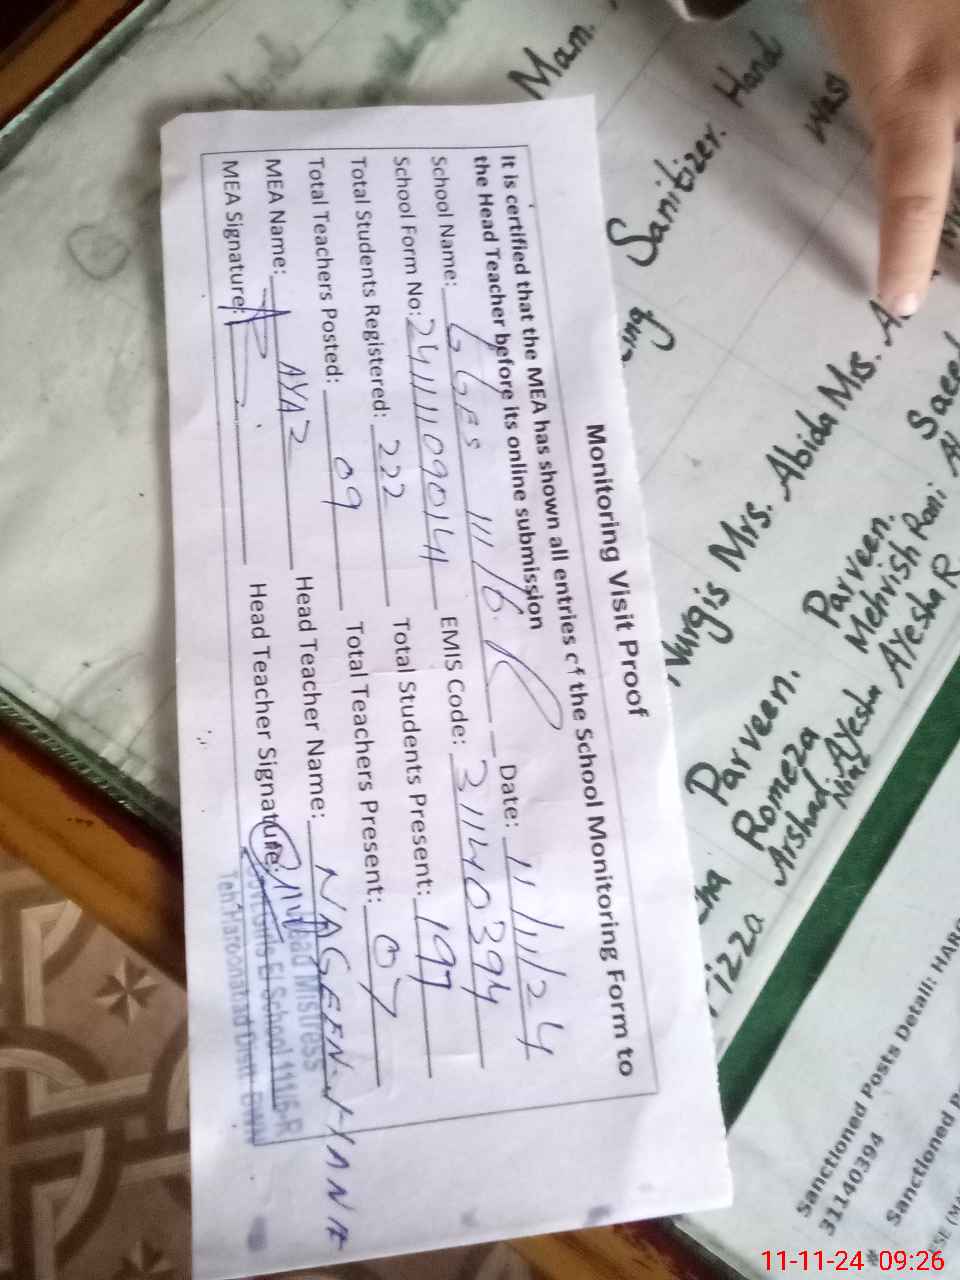 Monitoring Visit Proof
It is certified that the MEA has shown all entries of the School Monitoring Form to
the Head Teacher before its online submission
School Name: GGES 111/6.R Date: 11/11/24
School Form No: EMIS Code: 31140394
Total Students Registered: 222 Total Students Present: 197
Total Teachers Posted: 09 Total Teachers Present: 07
MEA Name: AYAZ Head Teacher Name: NAGEENA
MEA Signature: Head Teacher Signature:
Head Mistress
Govt. Girls El School 111/6-R
Teh: Haroonabad Distt: BWN
Mam.
Sanitizer. Hand
was
Nurgis Mrs. Abida Mrs.
Parveen. Saeed
Mehvish Rani
Parveen. AYesha R
Romeza AYesha
Arshad. Niaz
Sanctioned Posts Detail:
31140394
#
Sanctioned
11-11-24 09:26